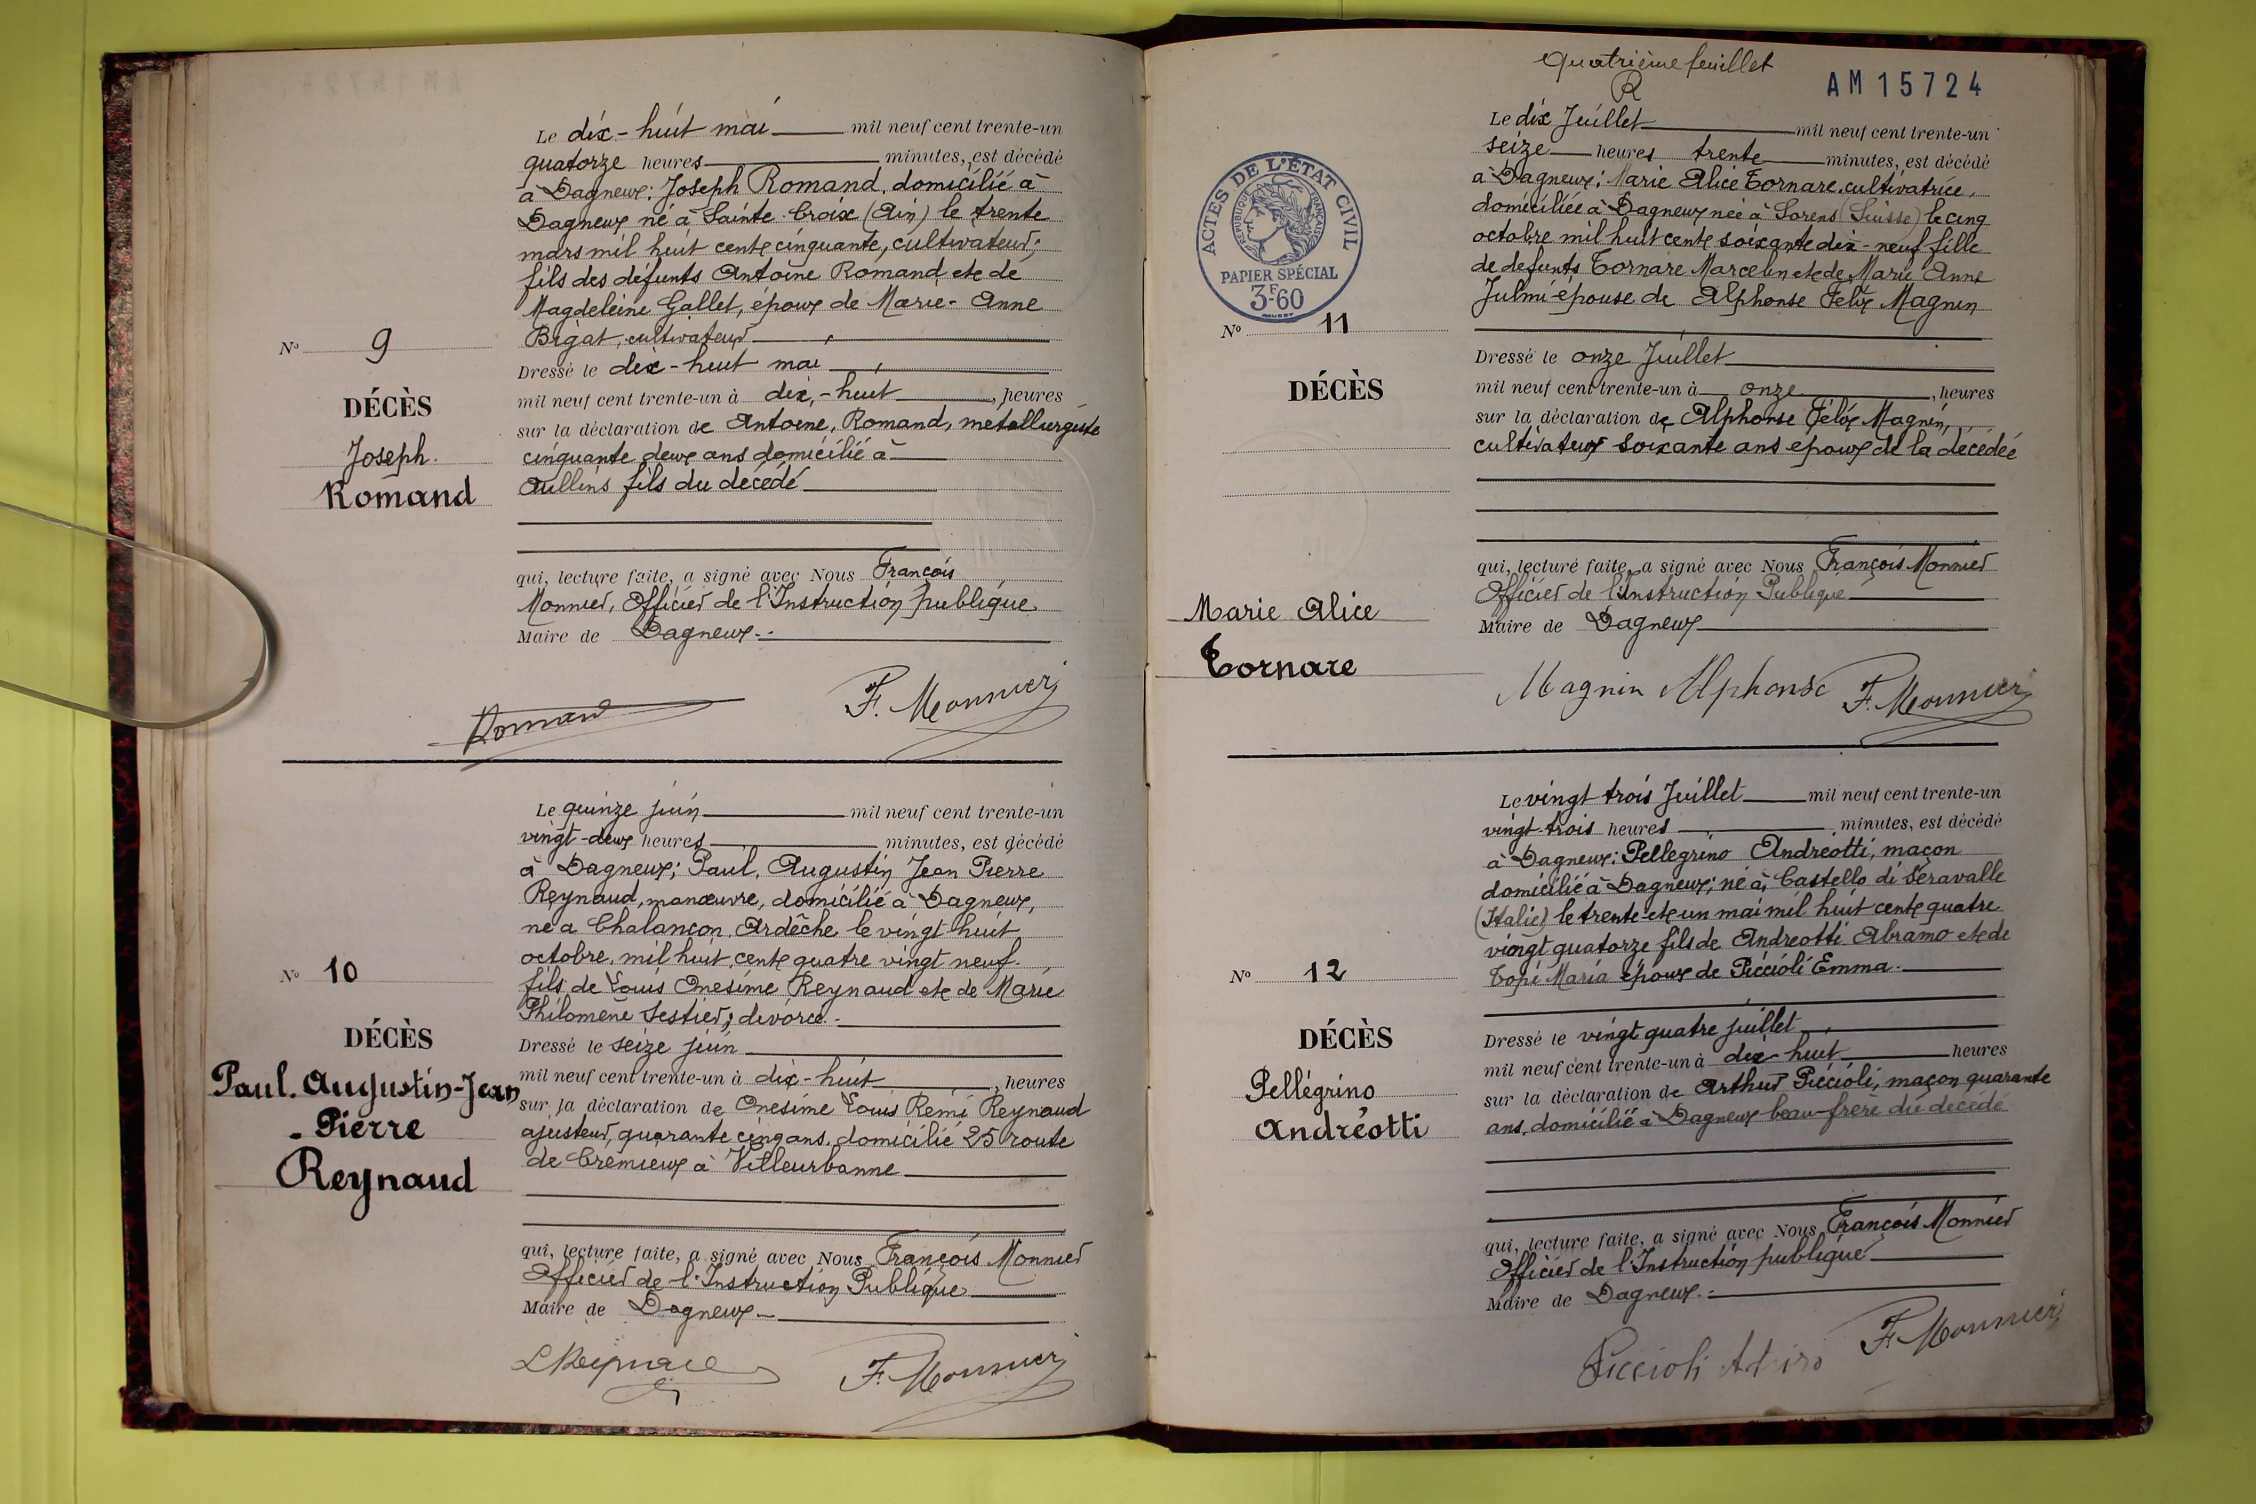 Le dix-huit mai mil neuf cent trente-un
quatorze heures minutes, est décédé
à Dagneux: Joseph Romand, domicilié à
Dagneux né à Sainte-Croix (Ain) le trente
mars mil huit cent cinquante, cultivateur,
fils des défunts Antoine Romand et de
Magdeleine Gallet, époux de Marie-Anne
Bigat, cultivateur
Dressé le dix-huit mai
mil neuf cent trente-un à dix-huit, heures
sur la déclaration de Antoine, Romand, métallurgiste
cinquante deux ans domicilié à
Oullins fils du décédé
qui, lecture faite, a signé avec Nous François
Monnier, Officier de l'Instruction publique
Maire de Dagneux
Romand F. Monnier
No 9
DÉCÈS
Joseph
Romand
Le quinze juin mil neuf cent trente-un
vingt-deux heures minutes, est décédé
à Dagneux; Paul, Augustin Jean Pierre
Reynaud, manœuvre, domicilié à Dagneux,
né à Chalancon, Ardêche le vingt huit
octobre, mil huit cent quatre vingt neuf
fils de Louis Onésime Reynaud et de Marie
Philomène Sestier, divorcé
Dressé le seize juin
mil neuf cent trente-un à dix-huit, heures
sur la déclaration de Onesime Louis Rémi Reynaud
ajusteur, quarante cinq ans, domicilié 25 route
de Crémieux à Villeurbanne
qui, lecture faite, a signé avec Nous François Monnier
Officier de l'Instruction Publique
Maire de Dagneux
L Reynaud F. Monnier
No 10
DÉCÈS
Paul. Augustin-Jean
- Pierre
Reynaud
Quatrième feuillet
R
AM 15724
ACTES DE L'ÉTAT CIVIL
RÉPUBLIQUE FRANÇAISE
PAPIER SPÉCIAL
3F60
Le dix Juillet mil neuf cent trente-un
seize heures trente minutes, est décédé
à Dagneux: Marie Alice Tornare, cultivatrice,
domiciliée à Dagneux née à Sorens (Suisse) le cinq
octobre mil huit cent soixante dix-neuf fille
de defunts Tornare Marcelin et de Marie Anne
Julmi épouse de Alphonse Félix Magnin
Dressé le onze Juillet
mil neuf cent trente-un à onze, heures
sur la déclaration de Alphonse Félix Magnin,
cultivateur soixante ans epoux de la décédée
qui, lecture faite, a signé avec Nous François Monnier
Officier de l'Instruction Publique
Maire de Dagneux
Magnin Alphonse F. Monnier
No 11
DÉCÈS
Marie Alice
Tornare
Le vingt trois Juillet mil neuf cent trente-un
vingt-trois heures minutes, est décédé
à Dagneux: Pellegrino Andréotti, maçon
domicilié à Dagneux; né à Castello di Seravalle
(Italie) le trente et un mai mil huit cent quatre
vingt quatorze fils de Andreotti Abramo et de
Topi Maria époux de Piccioli Emma
Dressé le vingt quatre juillet
mil neuf cent trente-un à dix-huit heures
sur la déclaration de Arthur Piccioli, maçon quarante
ans, domicilié à Dagneux beau-frère du décédé
qui, lecture faite, a signé avec Nous François Monnier
Officier de l'Instruction publique
Maire de Dagneux
Piccioli F. Monnier
No 12
DÉCÈS
Pellégrino
Andréotti